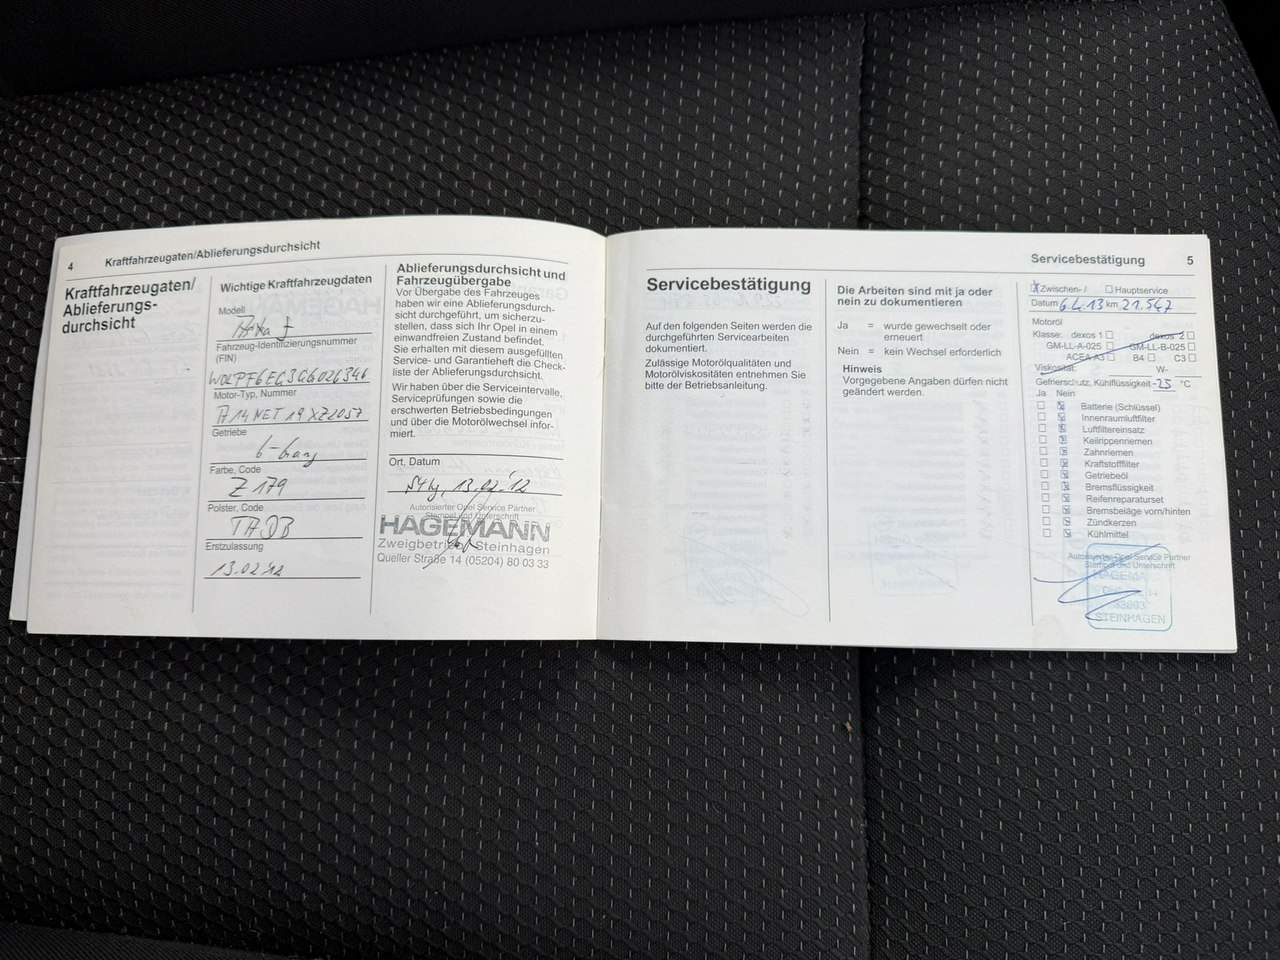 4
Kraftfahrzeugaten/Ablieferungsdurchsicht
Kraftfahrzeugaten/
Ablieferungs-
durchsicht
Wichtige Kraftfahrzeugdaten
Modell
Fahrzeug-Identifizierungsnummer
(FIN)
W0LPF6EG3G6026346
Motor-Typ, Nummer
A14NET 19XZ2057
Getriebe
6-Gang
Farbe, Code
Z 179
Polster, Code
TADB
Erstzulassung
13.02.12
Ablieferungsdurchsicht und
Fahrzeugübergabe
Vor Übergabe des Fahrzeuges
haben wir eine Ablieferungsdurch-
sicht durchgeführt, um sicherzu-
stellen, dass sich Ihr Opel in einem
einwandfreien Zustand befindet.
Sie erhalten mit diesem ausgefüllten
Service- und Garantieheft die Check-
liste der Ablieferungsdurchsicht.
Wir haben über die Serviceintervalle,
Serviceprüfungen sowie die
erschwerten Betriebsbedingungen
und über die Motorölwechsel infor-
miert.
Ort, Datum
13.02.12
Autorisierter Opel Service Partner
Stempel und Unterschrift
HAGEMANN
Zweigbetrieb Steinhagen
Queller Straße 14 (05204) 80 03 33
Servicebestätigung 5
Servicebestätigung
Auf den folgenden Seiten werden die
durchgeführten Servicearbeiten
dokumentiert.
Zulässige Motorölqualitäten und
Motorölviskositäten entnehmen Sie
bitte der Betriebsanleitung.
Die Arbeiten sind mit ja oder
nein zu dokumentieren
Ja = wurde gewechselt oder
erneuert
Nein = kein Wechsel erforderlich
Hinweis
Vorgegebene Angaben dürfen nicht
geändert werden.
Zwischen- / Hauptservice
Datum 6.4.13 km 21.547
Motoröl
Klasse: dexos 1 dexos 2
GM-LL-A-025 GM-LL-B-025
ACEA A3 B4 C3
Viskosität: W-
Gefrierschutz, Kühlflüssigkeit -25 °C
Ja Nein
Batterie (Schlüssel)
Innenraumluftfilter
Luftfiltereinsatz
Keilrippenriemen
Zahnriemen
Kraftstofffilter
Getriebeöl
Bremsflüssigkeit
Reifenreparaturset
Bremsbeläge vorn/hinten
Zündkerzen
Kühlmittel
Autorisierter Opel Service Partner
Stempel und Unterschrift
STEINHAGEN